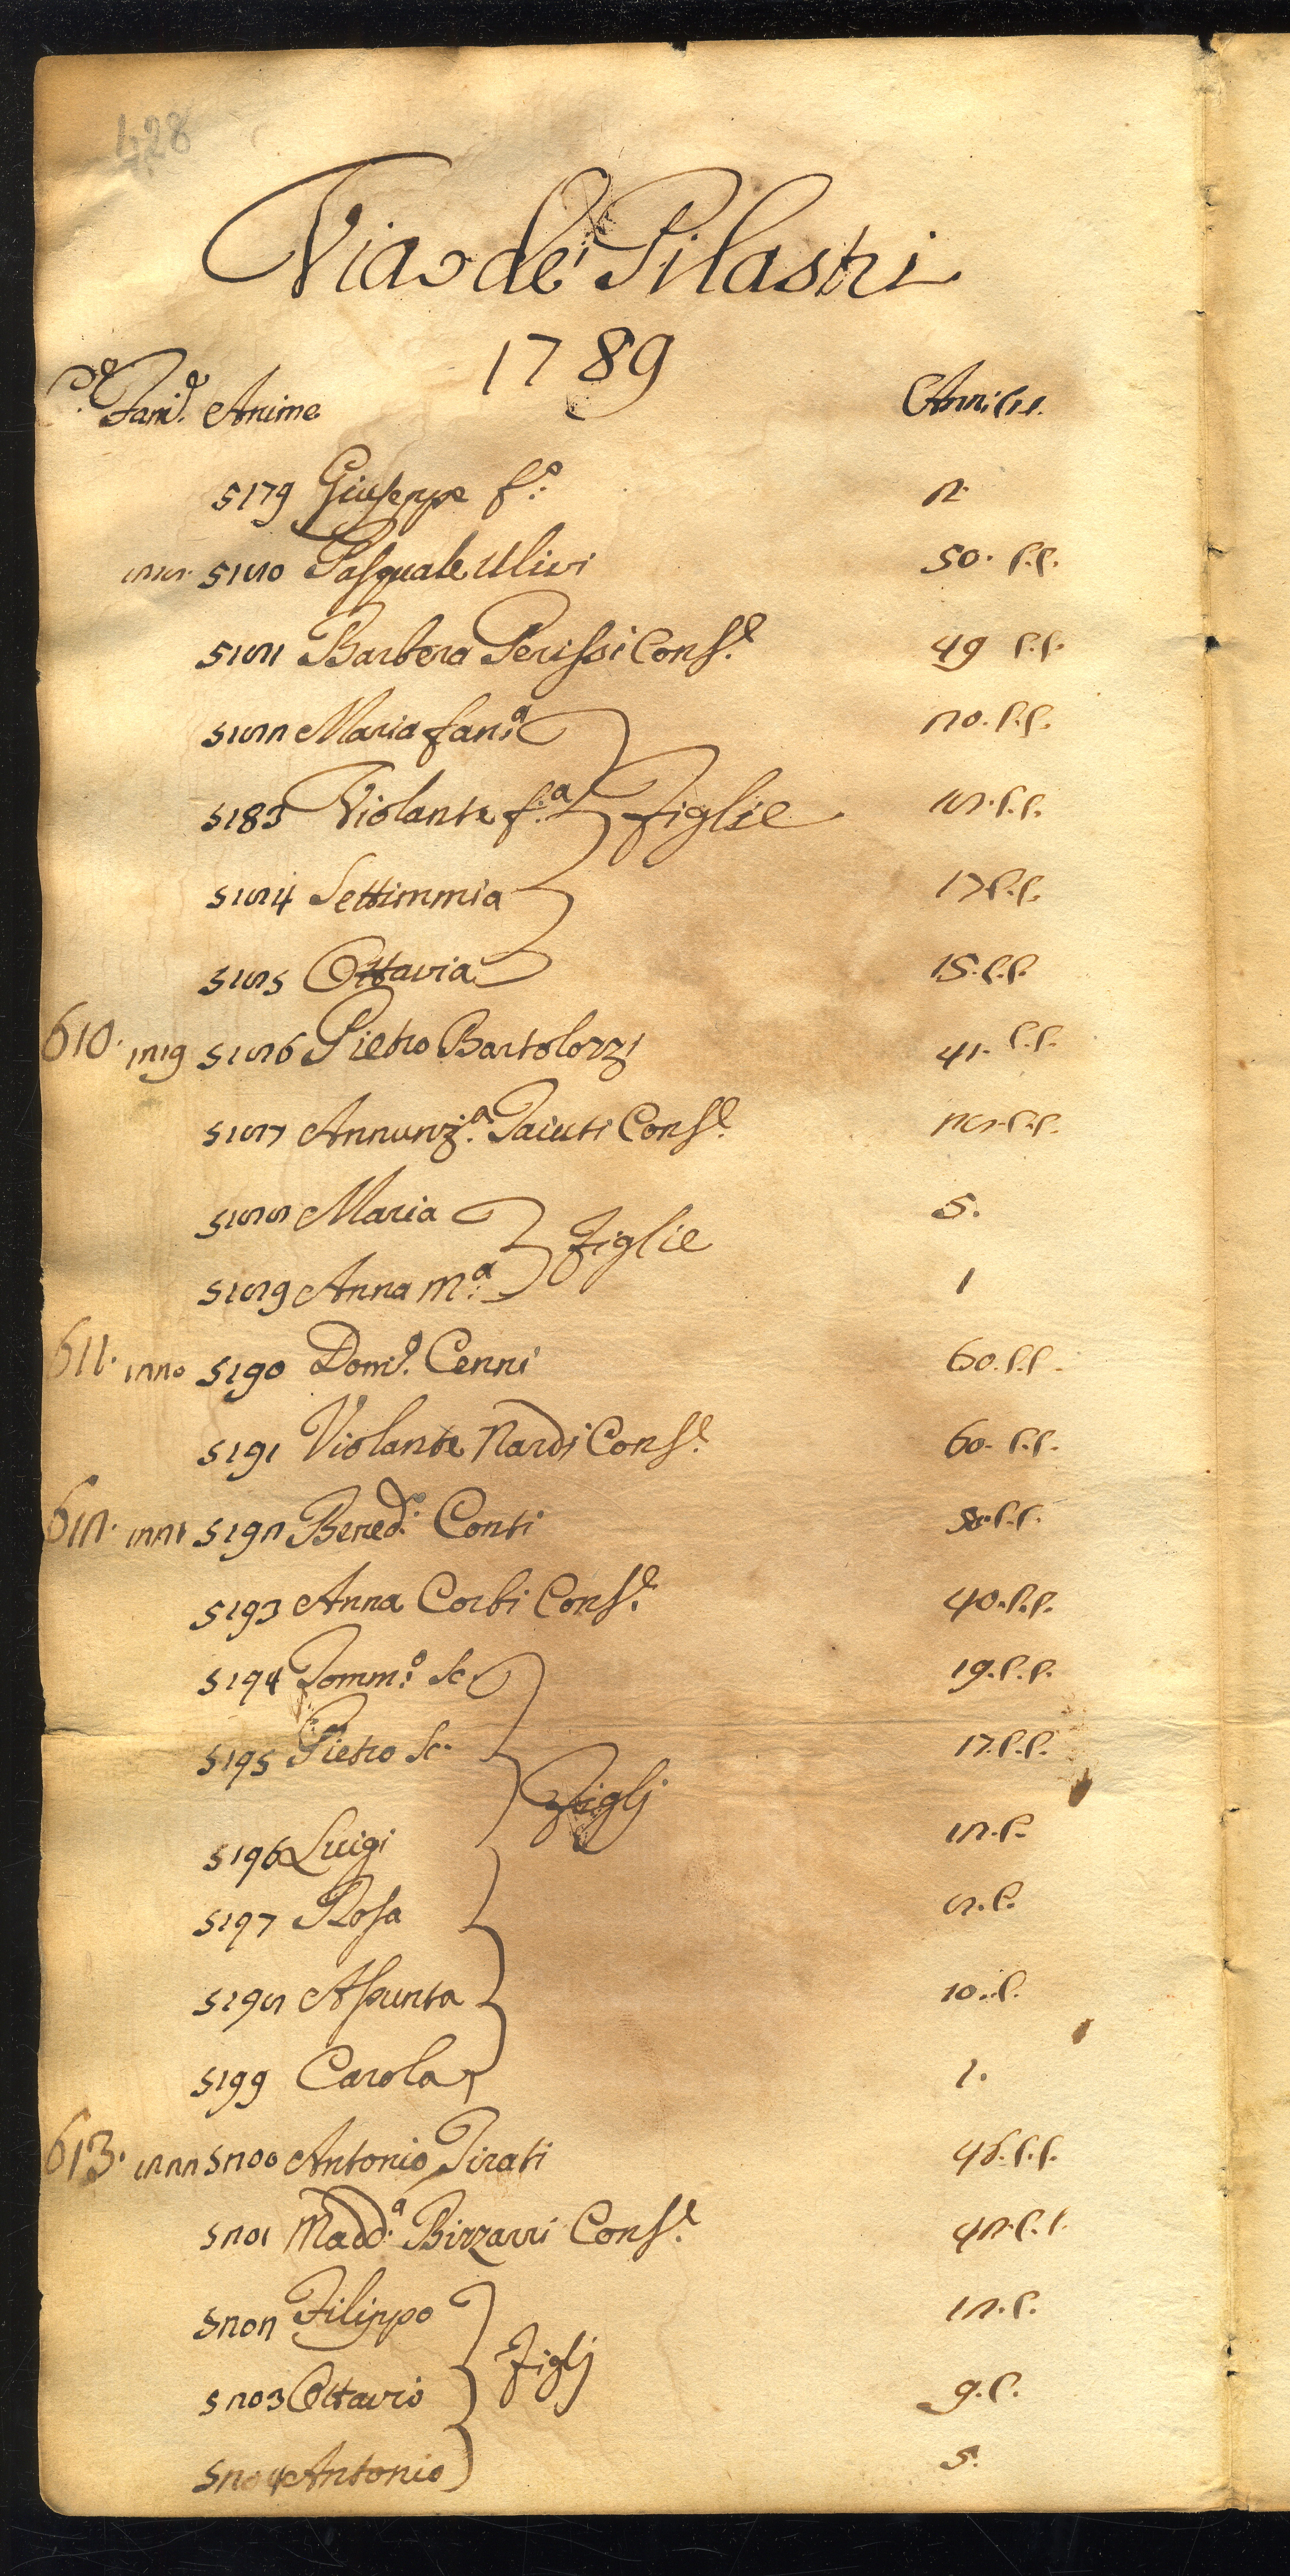 428
Via de' Pilastri
1789
Fam.e Anime Anni C.
5179 Giuseppe f.o 2.
1218. 5180 Pasquale Ulivi 50. C.C.
5181 Barbera Perissi Cons.e 49 C.C.
5182 Maria fan.a 20. C.C.
5183 Violante f.a Figlie 18. C.C.
5184 Settimmia 17 C.C.
5185 Ottavia 15. C.C.
610. 1219 5186 Pietro Bartolozzi 41. C.C.
5187 Annunz.a Paiuti Cons.e 28. C.C.
5188 Maria 5.
Figlie
5189 Anna M.a 1
611. 1220 5190 Dom.o Cenni 60. C.C.
5191 Violante Nardi Cons.e 60. C.C.
612. 1221 5192 Bened.o Conti 50. C.C.
5193 Anna Corbi Cons.e 40. C.C.
5194 Tomm.o Sc. 19. C.C.
5195 Pietro Sc. 17. C.C.
Figlj
5196 Luigi 12. C.
5197 Rosa 8. C.
5198 Assunta 10. C.
5199 Carola 1.
613. 1222 5200 Antonio Pirati 46. C.C.
5201 Madd.a Bizzarri Cons.e 42. C.C.
5202 Filippo 12. C.
Figlj
5203 Ottavio 9. C.
5204 Antonio 5.